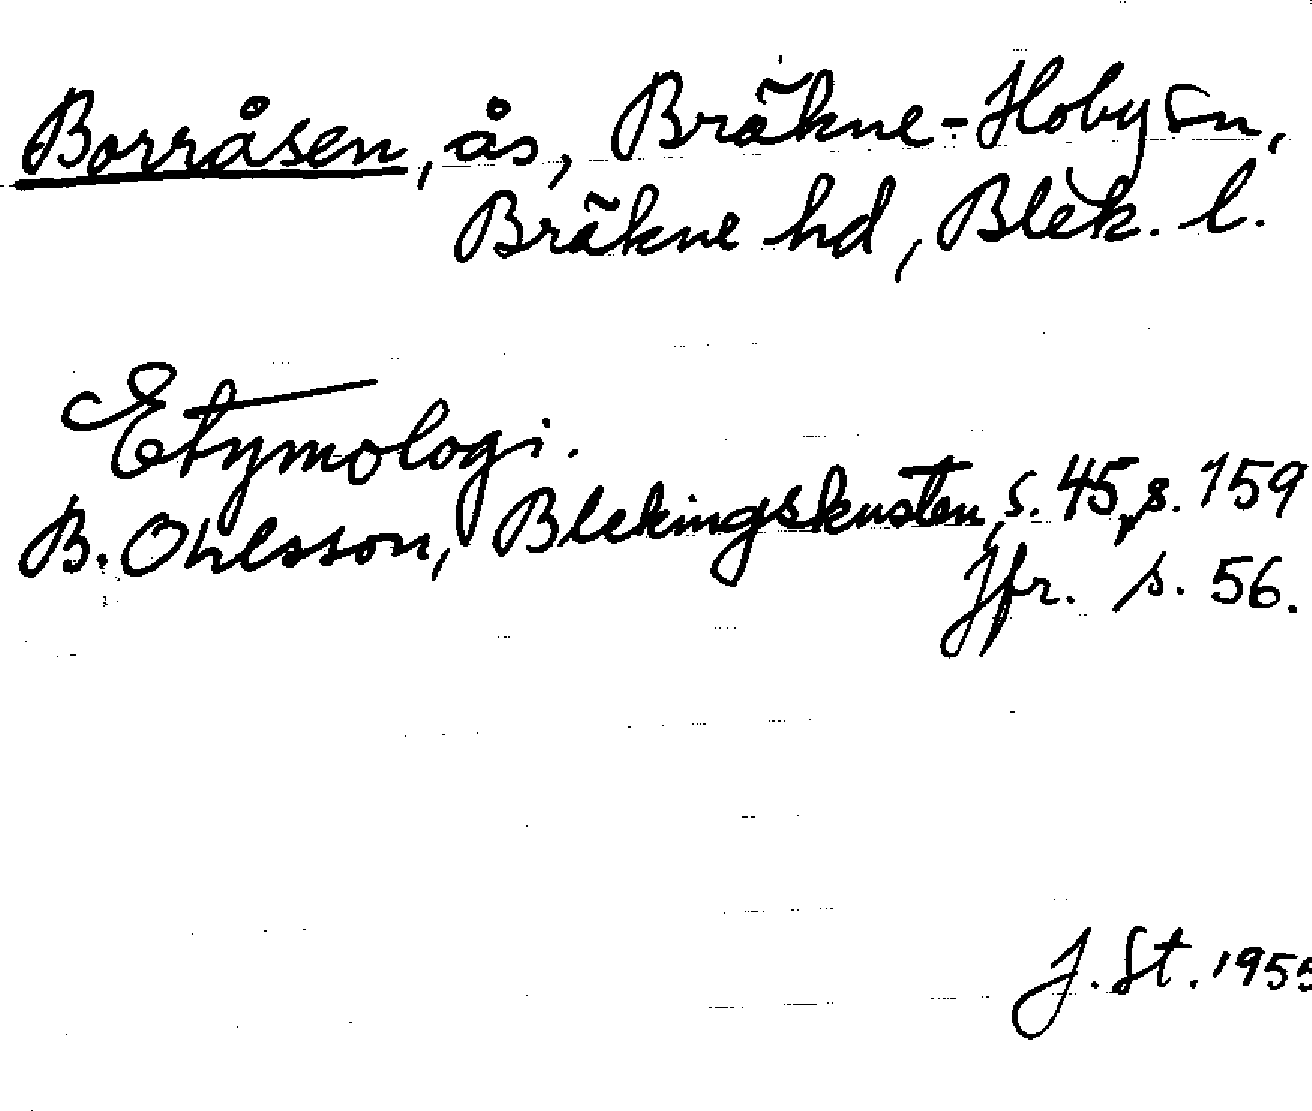 Borråsen, ås, Bräkne-Hoby sn,
Bräkne hd, Blek. l.
Etymologi.
B. Ohlsson, Blekingskusten, s. 45, s. 159
Jfr. s. 56.
J. St. 1955